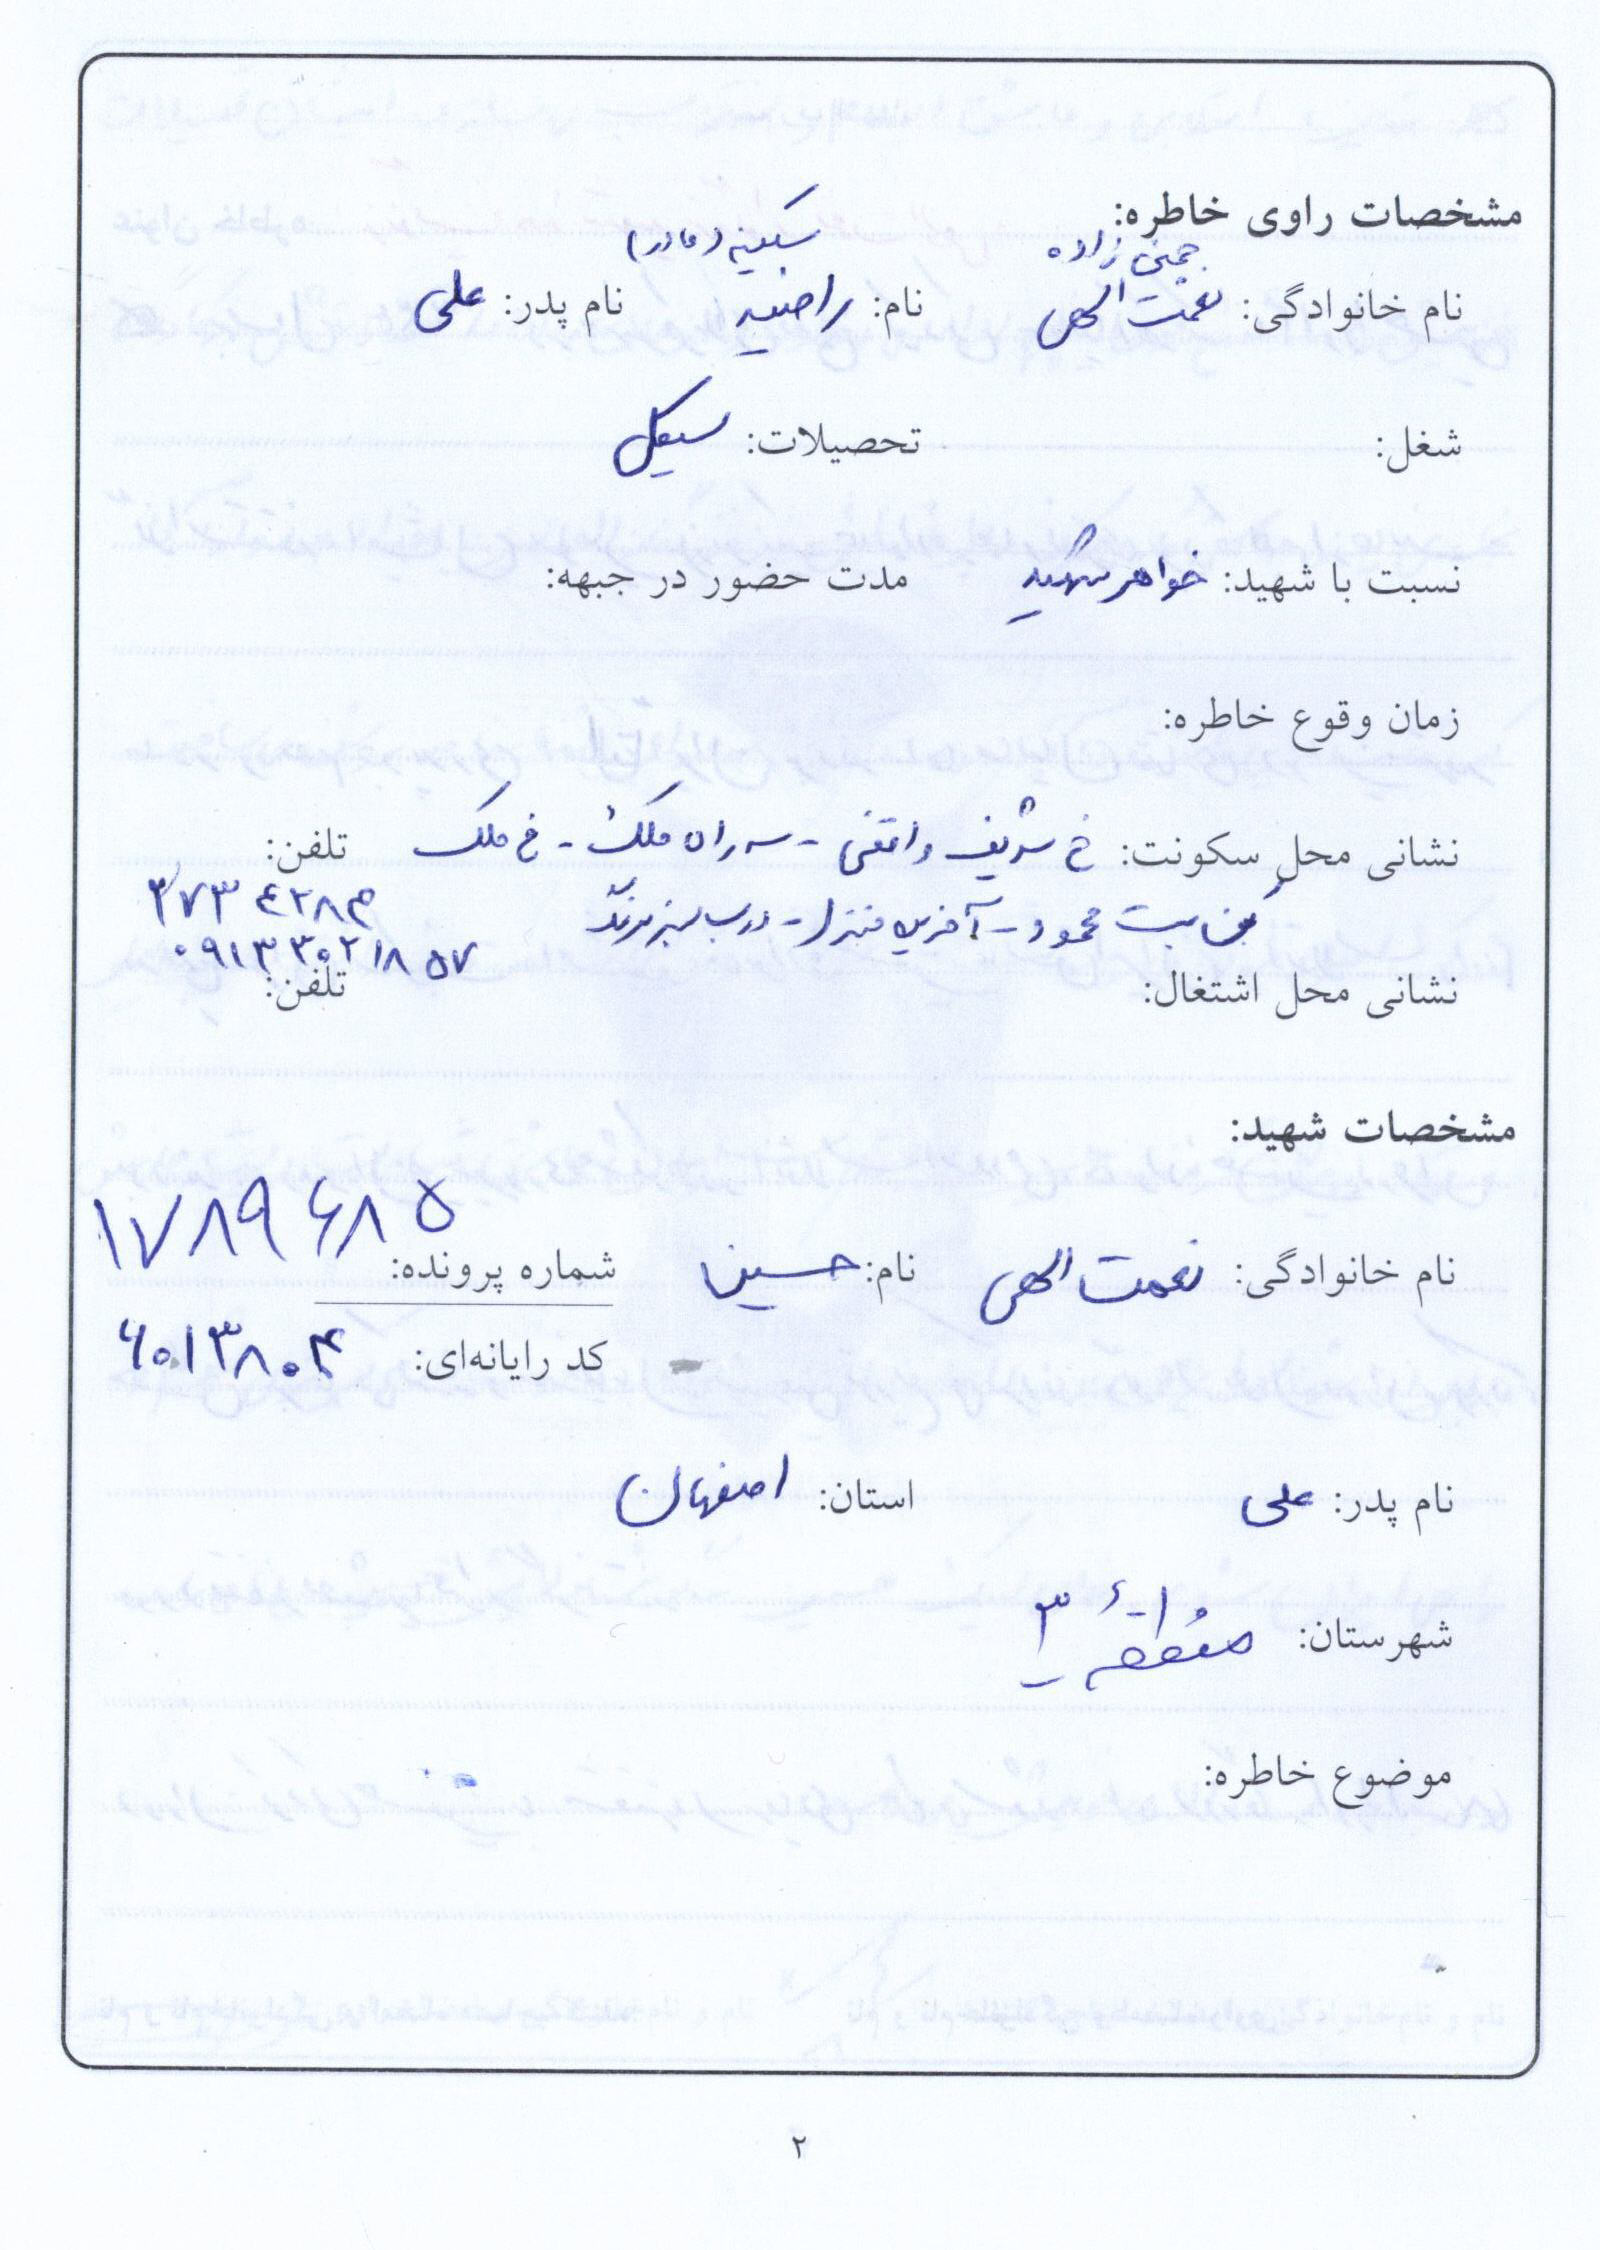 مشخصات راوی خاطره:
سکینه (مادر)
نام خانوادگی: نعمت الهی نام: راضیه نام پدر: علی
شغل: تحصیلات: سیکل
نسبت با شهید: خواهر شهید مدت حضور در جبهه:
زمان وقوع خاطره:
نشانی محل سکونت: خ شریف واقفی - سه راه ملک - خ ملک تلفن:
محمود - آخرین منزل - درب سبز رنگ
۰۹۱۳۳۰۲۱۸۵۷
نشانی محل اشتغال: تلفن:
مشخصات شهید:
نام خانوادگی: نعمت الهی نام: حسین شماره پرونده: ۱۷۸۹۶۸۵
کد رایانه‌ای: ۶۰۱۳۸۰۴
نام پدر: علی استان: اصفهان
شهرستان: منطقه ۳
موضوع خاطره:
۲